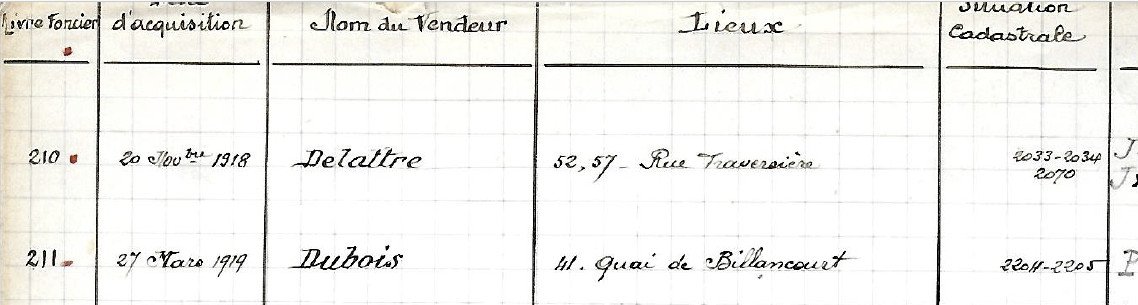 Livre Foncier d'acquisition Nom du Vendeur Lieux Situation
Cadastrale
210 20 Novbre 1918 Delattre 52, 57 - Rue Traversière 2033-2034
2070
211 27 Mars 1919 Dubois 41. Quai de Billancourt 2204-2205